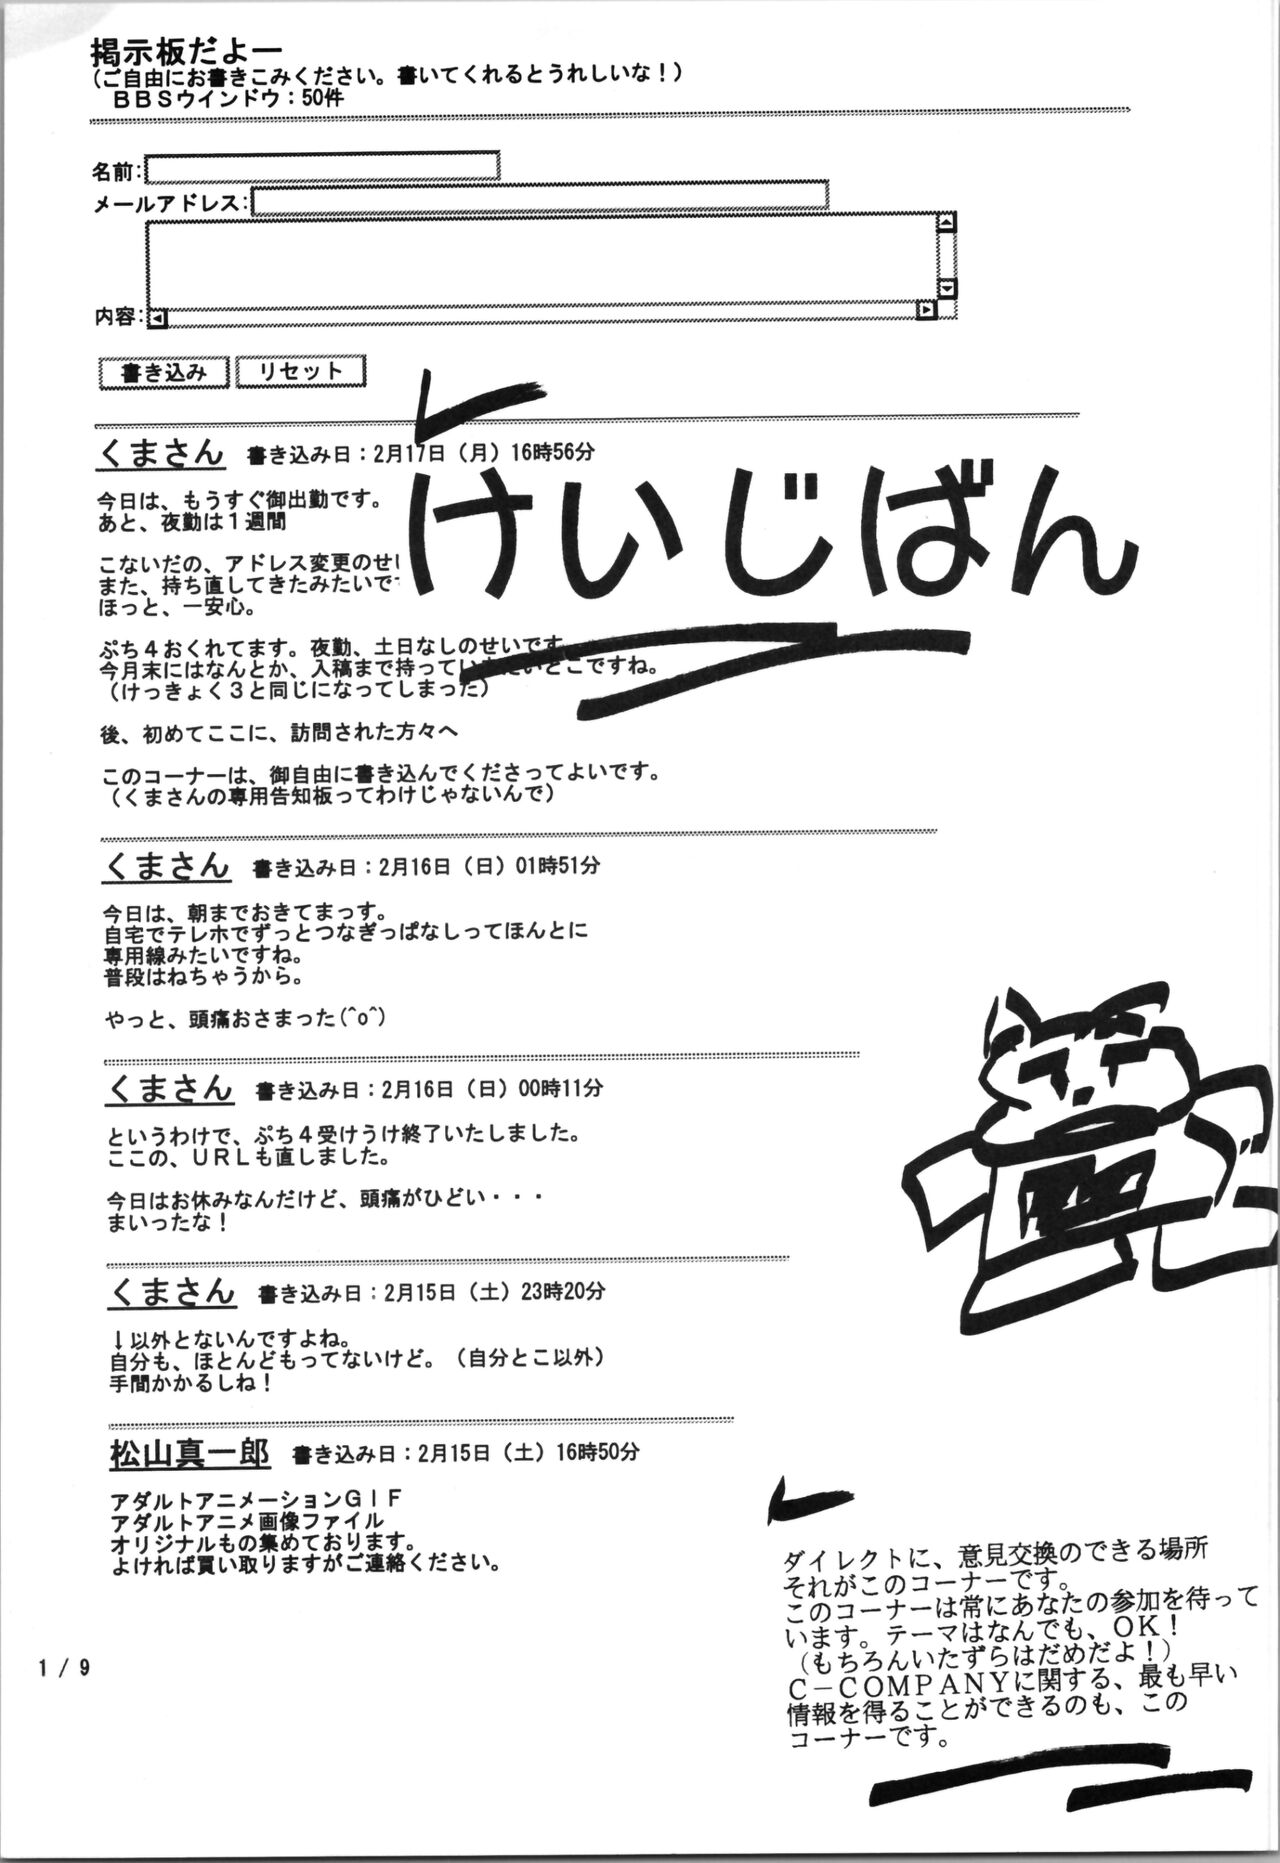 掲示板だよー
(ご自由にお書きこみください。書いてくれるとうれしいな！)
ＢＢＳウインドウ：50件
名前:
メールアドレス:
内容:
書き込み リセット
くまさん 書き込み日：2月17日（月）16時56分
けいじばん
今日は、もうすぐ御出勤です。
あと、夜勤は１週間
こないだの、アドレス変更のせい
また、持ち直してきたみたいで
ほっと、一安心。
ぷち４おくれてます。夜勤、土日なしのせいです
今月末にはなんとか、入稿まで持って
とこですね。
（けっきょく３と同じになってしまった）
後、初めてここに、訪問された方々へ
このコーナーは、御自由に書き込んでくださってよいです。
（くまさんの専用告知板ってわけじゃないんで）
くまさん 書き込み日：2月16日（日）01時51分
今日は、朝までおきてまっす。
自宅でテレホでずっとつなぎっぱなしってほんとに
専用線みたいですね。
普段はねちゃうから。
やっと、頭痛おさまった(^o^)
くまさん 書き込み日：2月16日（日）00時11分
というわけで、ぷち４受けうけ終了いたしました。
ここの、ＵＲＬも直しました。
今日はお休みなんだけど、頭痛がひどい・・・
まいったな！
くまさん 書き込み日：2月15日（土）23時20分
↓以外とないんですよね。
自分も、ほとんどもってないけど。（自分とこ以外）
手間かかるしね！
松山真一郎 書き込み日：2月15日（土）16時50分
アダルトアニメーションＧＩＦ
アダルトアニメ画像ファイル
オリジナルもの集めております。
よければ買い取りますがご連絡ください。
ダイレクトに、意見交換のできる場所
それがこのコーナーです。
このコーナーは常にあなたの参加を待って
います。テーマはなんでも、ＯＫ！
（もちろんいたずらはだめだよ！）
Ｃ－ＣＯＭＰＡＮＹに関する、最も早い
情報を得ることができるのも、この
コーナーです。
1 / 9